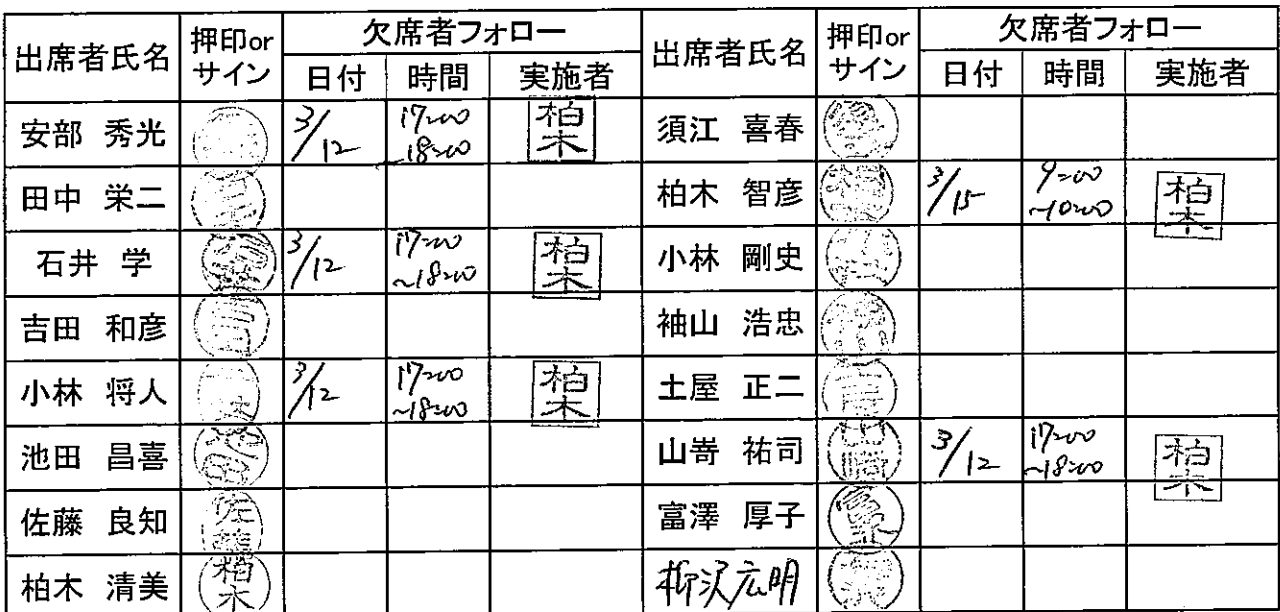 出席者氏名 押印or サイン 欠席者フォロー 出席者氏名 押印or サイン 欠席者フォロー
日付 時間 実施者 日付 時間 実施者
安部 秀光 3/12 17:00 ~18:00 柏木 須江 喜春
田中 栄二 柏木 智彦 3/15 9:00 ~10:00 柏木
石井 学 3/12 17:00 ~18:00 柏木 小林 剛史
吉田 和彦 袖山 浩忠
小林 将人 3/12 17:00 ~18:00 柏木 土屋 正二
池田 昌喜 池田 山嵜 祐司 山崎 3/12 17:00 ~18:00 柏木
佐藤 良知 佐藤 富澤 厚子
柏木 清美 柏木 柳沢広明